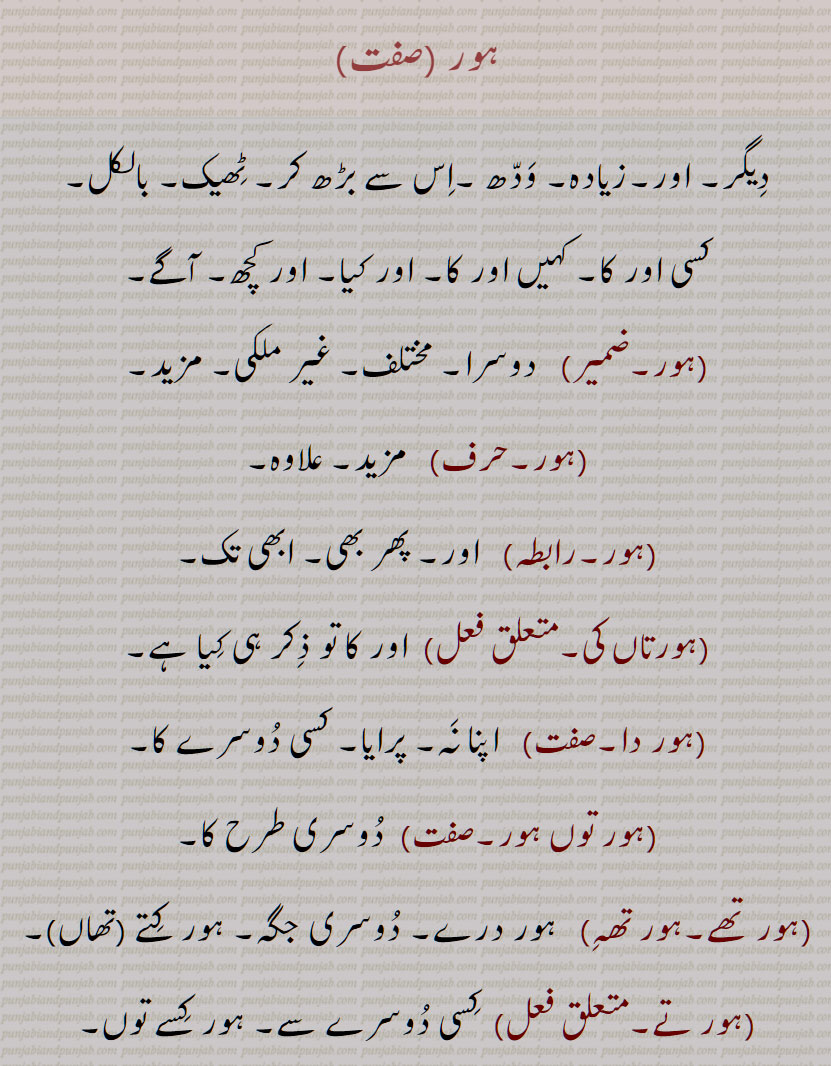 ہور (صفت)
دِیگر۔ اور۔زیادہ۔ وَدّھ ۔اِس سے بڑھ کر۔ ٹِھیک۔ بالکل۔
کسی اور کا۔ کہیں اور کا۔ اور کیا۔ اور کچھ۔ آگے۔
(ہور۔ضمیر) دوسرا۔ مختلف۔ غیر ملکی۔ مزید۔
(ہور۔حرف) مزید۔ علاوہ۔
(ہور۔رابطہ) اور۔ پھر بھی۔ ابھی تک۔
(ہورتاں کی۔متعلق فعل) اور کا تو ذِکر ہی کِیا ہے۔
(ہور دا۔صفت) اپنا نَہ۔ پرایا۔ کسی دُوسرے کا۔
(ہور توں ہور۔صفت) دُوسری طرح کا۔
(ہور تھے۔ہور تھہِ) ہور درے۔ دُوسری جگہ۔ ہور کِتے (تھاں)۔
(ہور تے۔متعلق فعل) کِسی دُوسرے سے۔ ہور کِسے توں۔